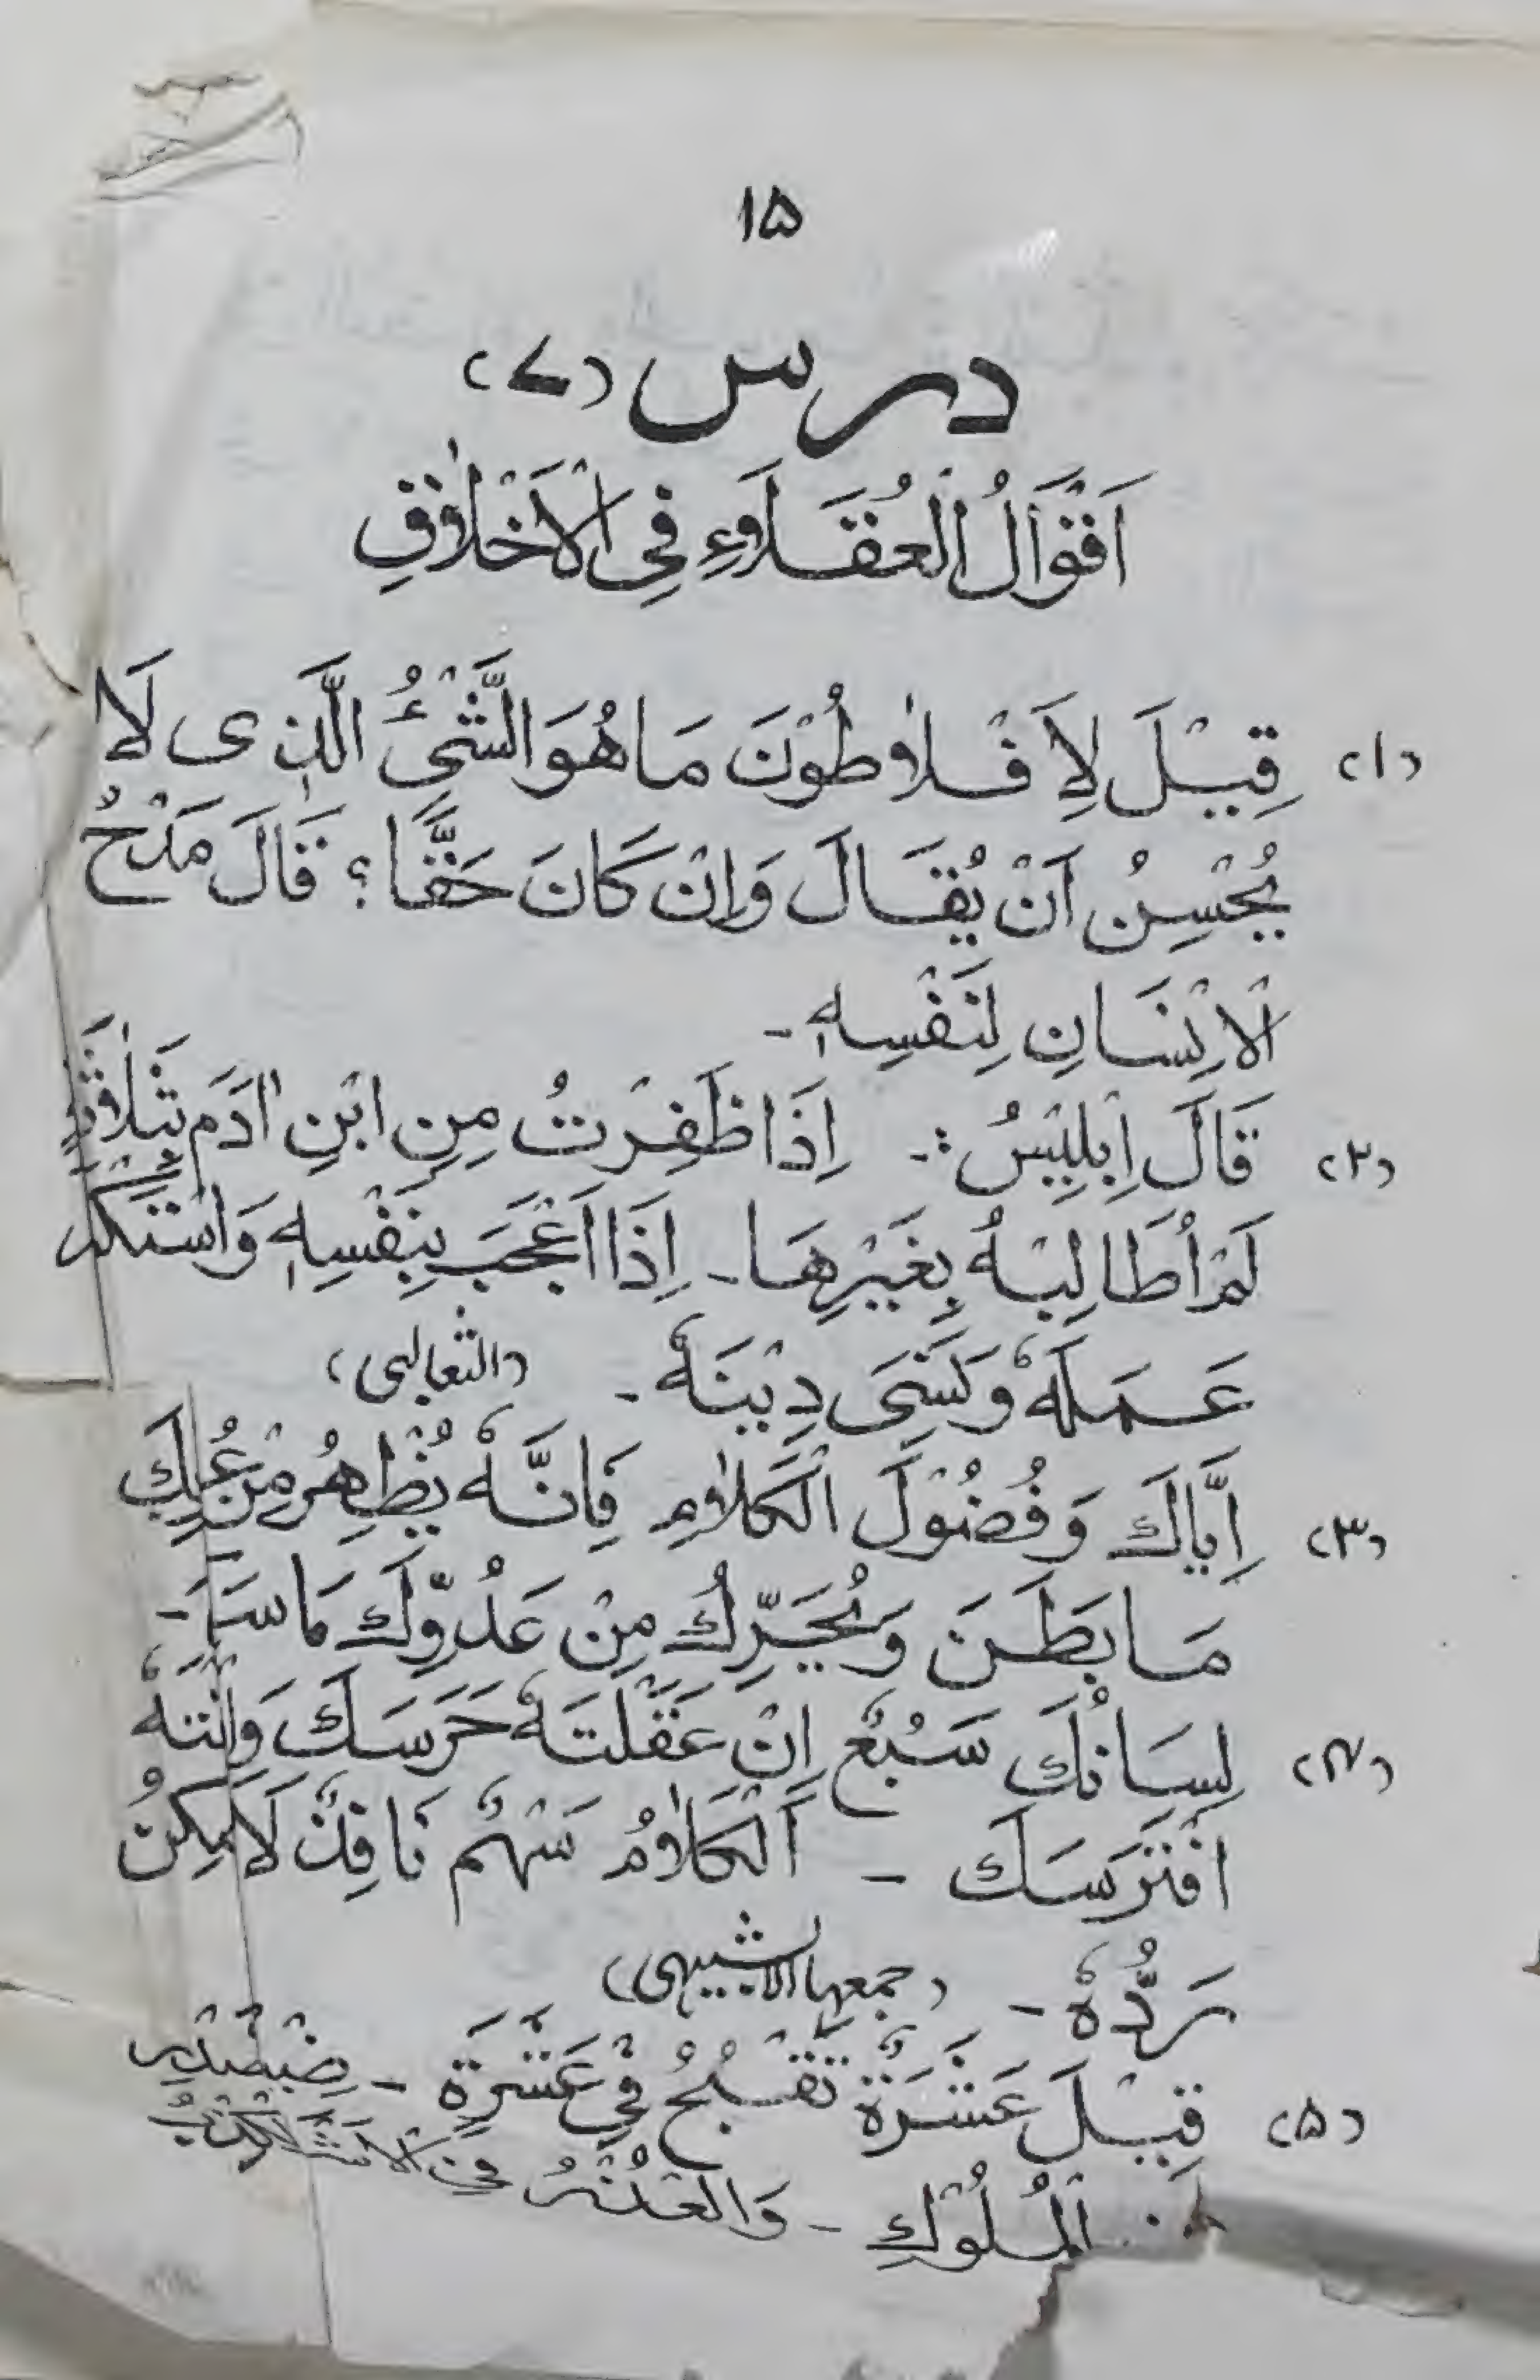 ۱۵
درس (۷)
اَقْوَالُ الْعُقَلَاءِ فِی الْاَخْلَاقِ
(۱) قِیْلَ لِاَفْلَاطُوْنَ مَا هُوَ الشَّیْءُ الَّذِی لَا
یُحْسِنُ اَنْ یُقَالَ وَاِنْ کَانَ حَقًّا؟ قَالَ مَدْحُ
الْاِنْسَانِ لِنَفْسِهٖ -
(۲) قَالَ اِبْلِیْسُ :- اِذَا ظَفِرْتُ مِنِ ابْنِ اٰدَمَ بِثَلَاثَةٍ
لَمْ اُطَالِبْهُ بِغَیْرِهَا - اِذَا اَعْجَبَ بِنَفْسِهٖ وَاسْتَکْثَرَ
عَمَلَهٗ وَنَسِیَ دِیْنَهٗ - (الثعالبی)
(۳) اِیَّاكَ وَفُضُوْلَ الْکَلَامِ فَاِنَّهٗ یُظْهِرُ مِنْ عُیُوْبِكَ
مَا بَطَنَ وَیُحَرِّكُ مِنْ عَدُوِّكَ مَا سَکَنَ -
(۴) لِسَانُكَ سَبُعٌ اِنْ عَقَلْتَهٗ حَرَسَكَ وَاِنْ
افْتَرَسَكَ - اَلْکَلَامُ سَهْمٌ نَافِذٌ لَا یُمْکِنُ
رَدُّهٗ - (جمعها الابشیهی)
(۵) قِیْلَ عَشَرَةٌ تَقْبُحُ فِیْ عَشَرَةٍ - ضِیْقُ
الْمُلُوْكِ - وَالْغَدْرُ فِی الْاَشْرَافِ